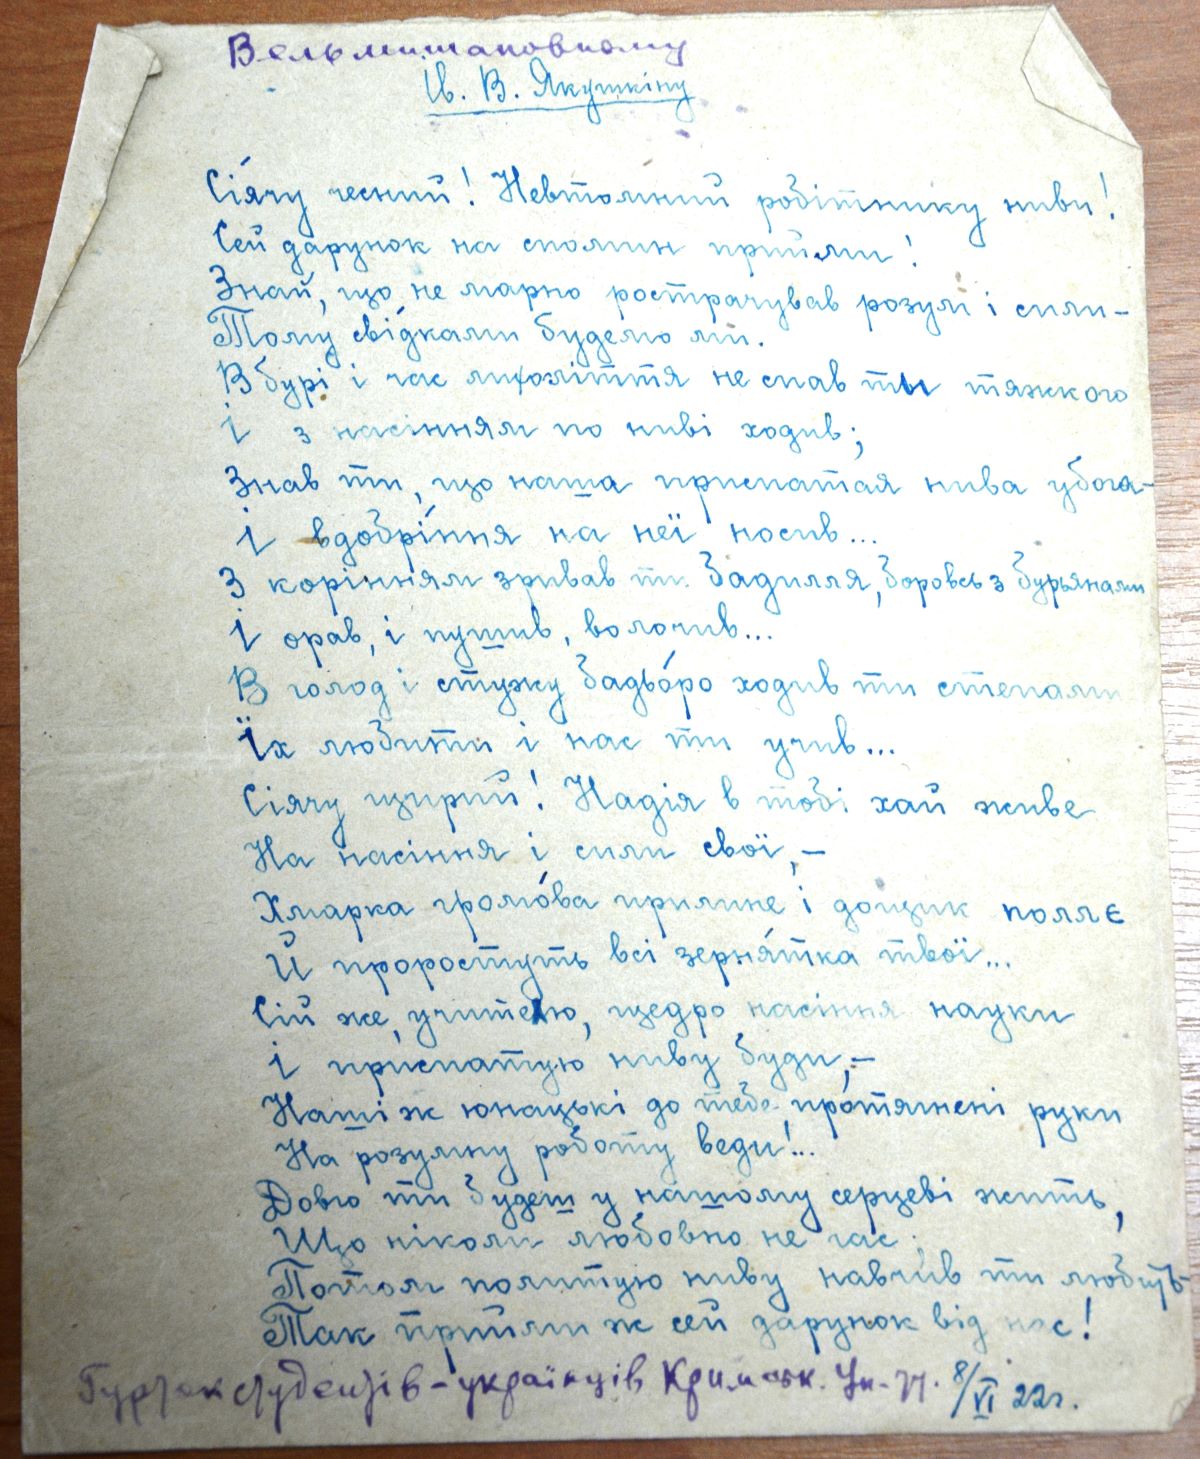 Вельмишановному
Ів. В. Якушкіну
Сіячу чесний! Невтомний робітнику ниви!
Сей дарунок на спомин прийми!
Знай, що не марно ростpачував розум і сили –
Тому свідками будемо ми.
В бурі і час лихоліття не спав ти тяжкого
І з насінням по ниві ходив;
Знав ти, що наша приспатая нива убога –
І вдобріння на неї носив...
З корінням зривав ти бадилля, боровсь з бурьянами
І орав, і пушив, волочив...
В голод і стужу бадьо́ро ходив ти степами
Їх любити і нас ти учив...
Сіячу щирий! Надія в тобі хай живе
На насіння і сили свої, –
Хмарка громо́ва прилине і дощик поллє
Й проростуть всі зерня́тка твої...
Сій же, учителю, щедро насіння науки
І приспатую ниву буди, –
Наші ж юнацькі до тебе про́тягнені руки
На розумну роботу веди!...
Довго ти будеш у нашому серцеві жить,
Що ніколи любовно не гас;
Потом политую ниву навчив ти любить –
Так прийми ж сей дарунок від нас!
Гурток студентів – українців Кримськ. Ун-ту. 8/VI 22г.